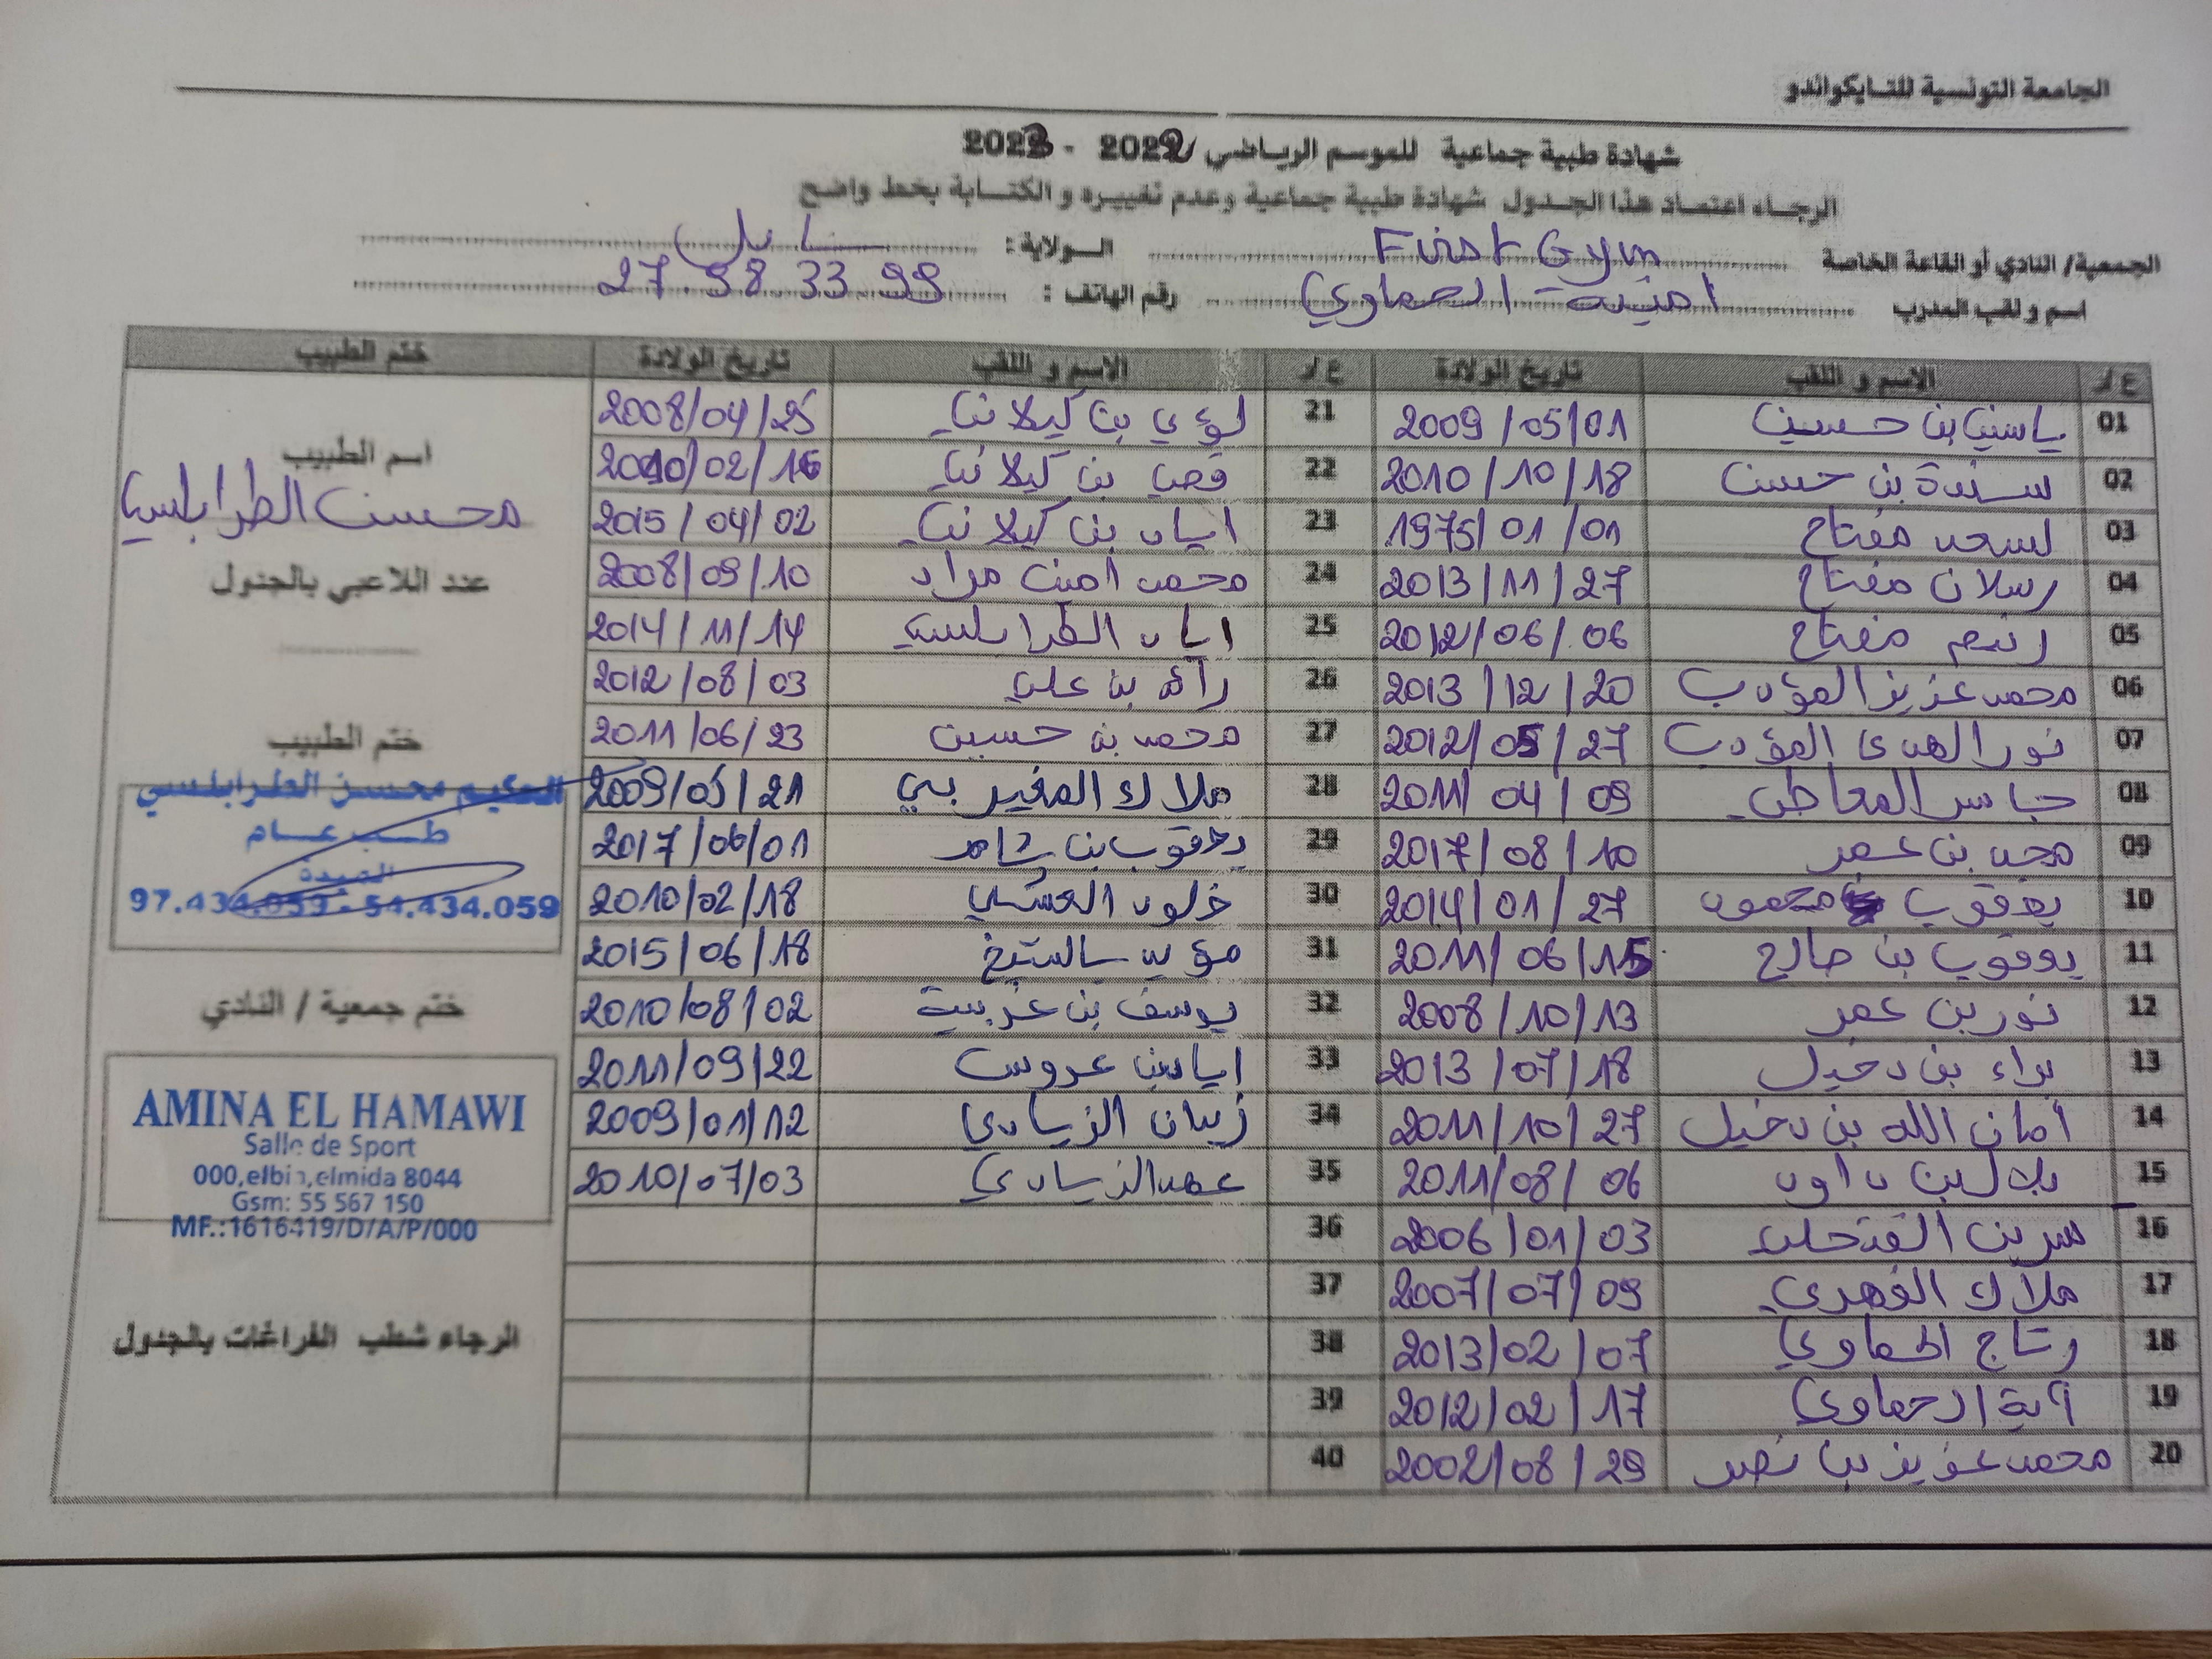 الجامعة التونسية للتايكواندو
شهادة طبية جماعية للموسم الرياضي 2022 - 2023
الرجاء اعتماد هذا الجدول شهادة طبية جماعية وعدم تغييره و الكتابة بخط واضح
الجمعية/ النادي أو القاعة الخاصة First Gym الولاية : نابل
اسم و لقب المدرب امينة الحماوي رقم الهاتف : 27.98.33.99
ع/ر الاسم و اللقب تاريخ الولادة ع/ر الاسم و اللقب تاريخ الولادة ختم الطبيب
01 ياسين بن حسين 2009/05/01 21 لؤي بن كيلاني 2008/04/25
02 سندة بن حسن 2010/10/18 22 قصي بن كيلاني 2010/02/16
03 لسعد مفتاح 1975/01/01 23 اياد بن كيلاني 2015/04/02
04 رسلان مفتاح 2013/11/27 24 محمد امين مراد 2008/09/10
05 رنيم مفتاح 2012/06/06 25 اياد الطرابلسي 2014/11/14
06 محمد عزيز المؤدب 2013/12/20 26 رائد بن علي 2012/08/03
07 نور الهدى المؤدب 2012/05/27 27 محمد بن حسين 2011/06/23
08 جاسر المعاطي 2011/04/09 28 ملاك المغيربي 2009/05/21
09 مجد بن عمر 2017/08/10 29 يعقوب بن 2017/06/01
10 يعقوب 2014/01/27 30 خلود العسكي 2010/02/18
11 يعقوب بن صالح 2011/06/15 31 مؤيد الشيخ 2015/06/18
12 نور بن عمر 2008/10/13 32 يوسف بن عربية 2010/08/02
13 براء بن دخيل 2013/07/18 33 اياس عروس 2011/09/22
14 أمان الله بن دخيل 2011/10/27 34 زيان الزيادي 2009/01/12
15 بلال بن داود 2011/08/06 35 عهد الزيادي 2010/07/03
16 سيرين 2006/01/03 36
17 ملاك الفهري 2007/07/09 37
18 رتاج الحماوي 2013/02/07 38
19 آية الحماوي 2012/02/17 39
20 محمد عزيز بن نصر 2002/08/29 40
اسم الطبيب
محسن الطرابلسي
عدد اللاعبي بالجدول
ختم الطبيب
الحكيم محسن الطرابلسي
طب عام
الميدة
97.434.059 - 54.434.059
ختم جمعية / النادي
AMINA EL HAMAWI
Salle de Sport
000,elbir,elmida 8044
Gsm: 55 567 150
MF.:1616419/D/A/P/000
الرجاء شطب الفراغات بالجدول